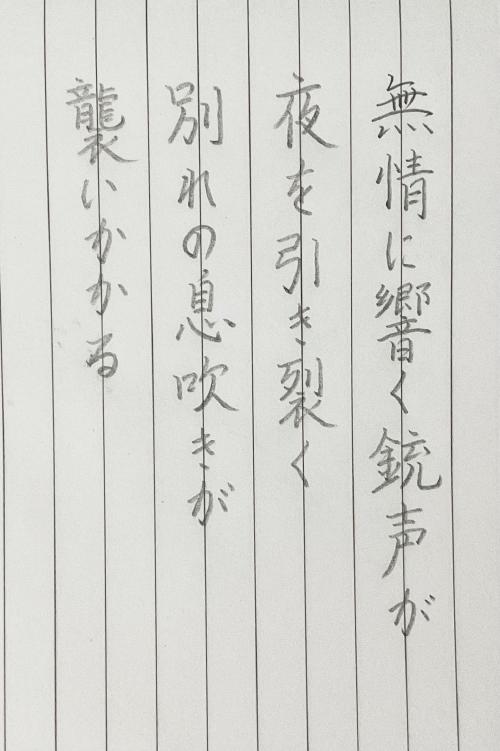 無情に響く銃声が
夜を引き裂く
別れの息吹きが
襲いかかる